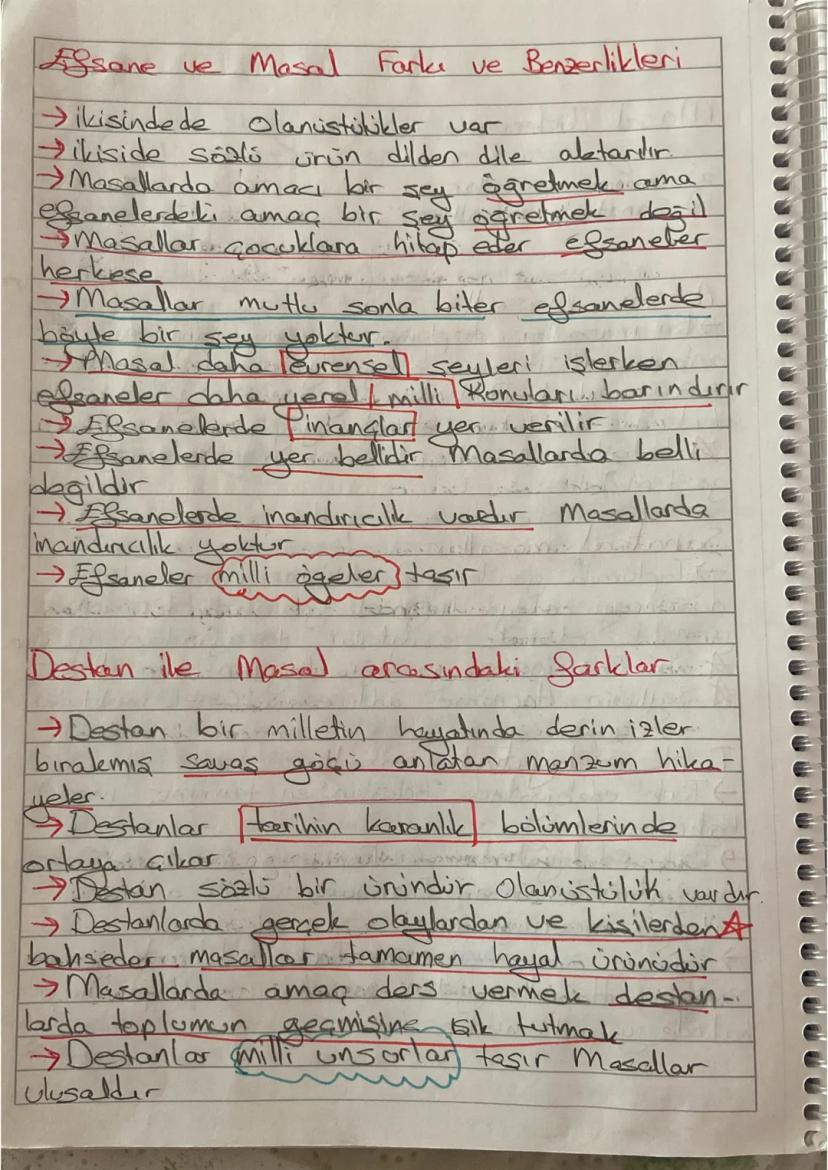 Efsane ve Masal Farkı ve Benzerlikleri
→ ikisindede Olanüstülükler var
→ ikiside sözlü ürün dilden dile aktarılır.
→ Masallarda amacı bir şey öğretmek ama
efsanelerdeki amaç bir şey öğretmek değil
→ Masallar çocuklara hitap eder efsaneler
herkese
→ Masallar mutlu sonla biter efsanelerde
böyle bir şey yoktur.
→ Masal daha evrensel şeyleri işlerken
efsaneler daha yerel milli konuları barındırır
→ Efsanelerde inançlar yer verilir
→ Efsanelerde yer bellidir Masallarda belli
degildir
→ Efsanelerde inandırıcılık vardır Masallarda
inandırıcılık yoktur
→ Efsaneler milli ögeler taşır
Destan ile Masal arasındaki farklar
→ Destan bir milletin hayatında derin izler
bırakmış savaş göçü anlatan manzum hika-
yeler.
→ Destanlar tarihin karanlık bölümlerinde
ortaya çıkar
→ Destan sözlü bir üründür Olanüstülük vardır.
→ Destanlarda gerçek olaylardan ve kişilerden
bahseder masallar tamamen hayal ürünüdür
→ Masallarda amaç ders vermek destan-
larda toplumun geçmişine ışık tutmak
→ Destanlar milli unsorlar taşır Masallar
ulusaldır